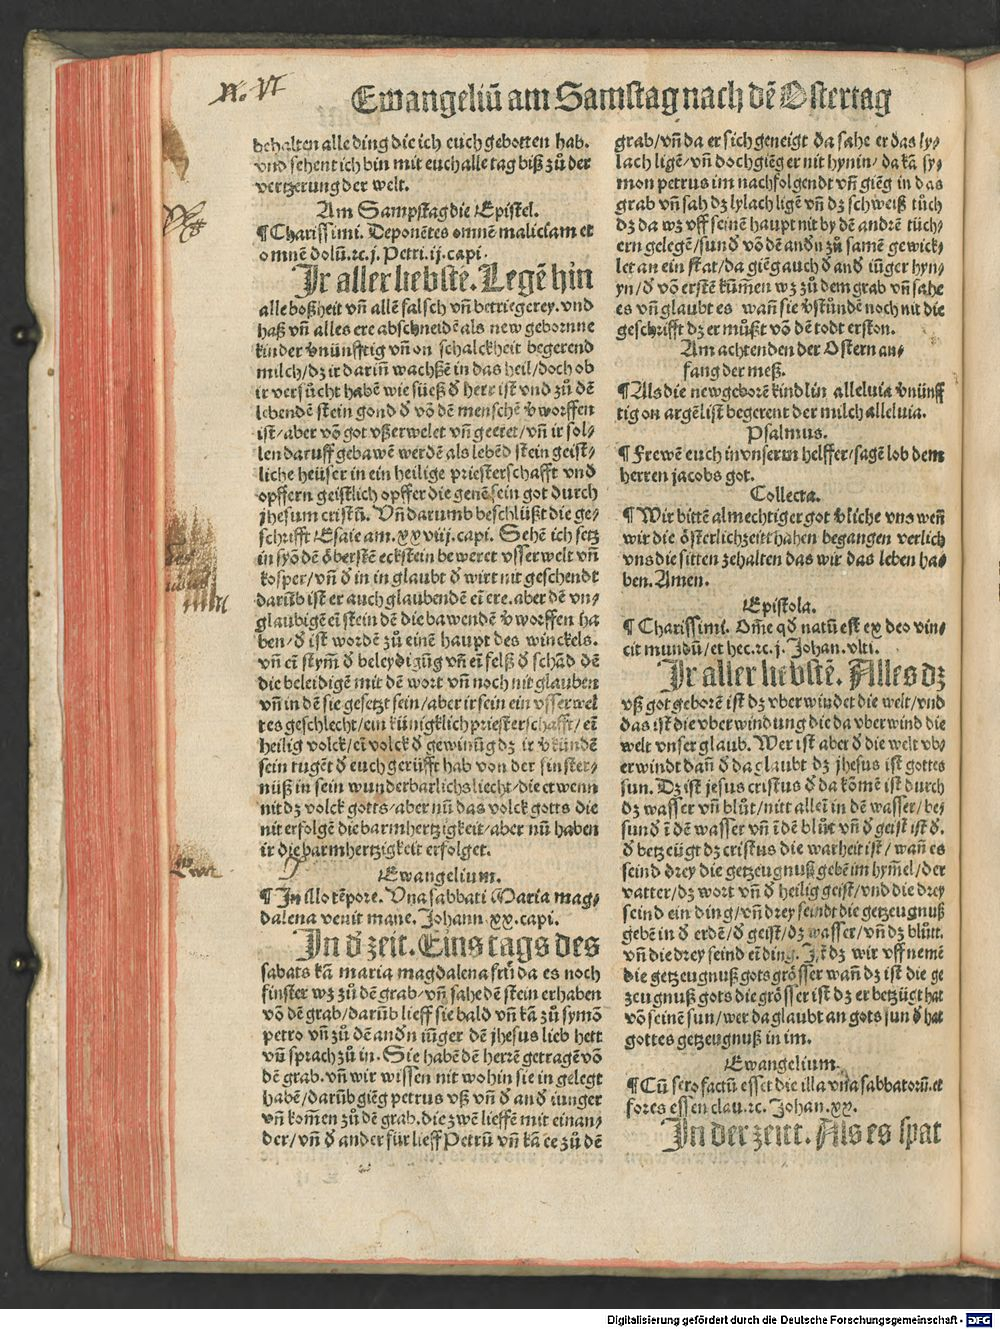 Ewangeliū am Samstag nach dē Ostertag
behalten alle ding die ich euch gebotten hab.
vnd sehent ich bin mit euch alle tag biß zů der
vertzerung der welt.
Am Sampstag die Epistel.
¶ Charissimi. Deponētes omnē maliciam et
omnē dolū. ꝛc. j. Petri. ij. capi.
Ir aller liebstē. Legē hin
alle boßheit vñ allē falsch vñ betriegerey. vnd
haß vñ alles ere abschneidē als new gebornne
kinder vnünfftig vñ on schalckheit begerend
milch/ dz ir dariñ wachßē in das heil/ doch ob
ir versůcht habē wie süeß d̓ herr ist vnd zů dē
lebendē stein gond d̓ vō dē menschē v̓worffen
ist/ aber vō got vßerwelet vñ geeret/ vñ ir sol⸗
len daruff gebawē werdē als lebēd stein geist⸗
liche heüser in ein heilige priesterschafft vnd
opffern geistlich opffer die genē sein got durch
jhesum cristū. Vñ darumb beschlüßt die ge⸗
schrifft Esaie am. xxviij. capi. Sehē ich setz
in syō dē öberstē eckstein beweret vsserwelt vñ
kosper/ vñ d̓ in in glaubt d̓ wirt nit geschendt
darūb ist er auch glaubendē eī ere. aber dē vn⸗
glaubigē eī stein dē die bawendē v̓worffen ha
ben/ d̓ ist wordē zů einē haupt des winckels.
vñ eī stym̄ d̓ beleydigūg vñ eī felß d̓ schād dē
die beleidigē mit dē wort vñ noch nit glauben
vñ in dē sie gesetzt sein/ aber ir sein ein vsserwel
tes geschlecht/ ein künigklich priesterschafft/ eī
heilig volck/ eī volck d̓ gewinūg dz ir v̓kündē
sein tugēt d̓ euch gerüfft hab von der finster⸗
nüß in sein wunderbarlichs liecht/ die et wenn
nit dz volck gotts/ aber nū das volck gotts die
nit erfolgē die barmhertzigkeit/ aber nū haben
ir die barmhertzigkeit erfolget.
Ewangelium.
¶ In illo tēpore. Vna sabbati Maria mag⸗
dalena venit mane. Johann. xx. capi.
In d̓ zeit. Eins tags des
sabats kā maria magdalena frů da es noch
finster wz zů dē grab/ vñ sahe dē stein erhaben
vō dē grab/ darūb lieff sie bald vñ kā zů symō
petro vñ zů dē andn̄ iūger dē jhesus lieb hett
vñ sprach zů in. Sie habē dē herrē getragē vō
dē grab. vñ wir wissen nit wo hin sie in gelegt
habē/ darūb giēg petrus vß vñ d̓ and̓ iunger
vñ kom̄en zů dē grab. die zwē lieffē mit einan⸗
der/ vñ d̓ ander für lieff Petrū vñ kā ee zů dē
grab/ vñ da er sich geneigt da sahe er das ly⸗
lach ligē/ vñ doch giēg er nit hynin/ da kā sy⸗
mon petrus im nachfolgendt vñ giēg in das
grab vñ sah dz lylach ligē vñ dz schweiß tůch
dz da wz vff seinē haupt nit by dē andrē tüch⸗
ern gelegē/ sund̓ vō dē andn̄ zů samē gewick⸗
let an ein stat/ da giēg auch d̓ and̓ iūger hyn⸗
yn/ d̓ vō erstē kūmen wz zů dem grab vñ sahe
es vñ glaubt es wañ sie v̓stůndē noch nit die
geschrifft dz er můßt vō dē todt erston.
Am achtenden der Ostern an⸗
fang der meß.
¶ Als die newgeborē kindlin alleluia v̓nünff
tig on argēlist begerent der milch alleluia.
Psalmus.
¶ Frewē euch in vnserm helffer/ sagē lob dem
herren jacobs got.
Collecta.
¶ Wir bittē almechtiger got v̓liche vns weñ
wir die österlich zeitt haben begangen verlich
vns die sitten zehalten das wir das leben ha⸗
ben. Amen.
Epistola.
¶ Charissimi. Om̄e qd̓ natū est ex deo vin⸗
cit mundū/ et hec. ꝛc. j. Johan. vlti.
Ir aller liebstē. Alles dz
vß got geborē ist dz vberwindet die welt/ vnd
das ist die vberwindung die da vberwind die
welt vnser glaub. Wer ist aber d̓ die welt vb⸗
erwindt dañ d̓ da glaubt dz jhesus ist gottes
sun. Dz ist jesus cristus d̓ da kōmē ist durch
dz wasser vñ blůt/ nitt alleī in dē wasser/ be⸗
sund̓ ī dē wasser vñ ī dē blůt vñ d̓ geist ist d̓.
d̓ betzeügt dz cristus die warheit ist/ wañ es
seind drey die getzeugnuß gebē im hym̄el/ der
vatter/ dz wort vñ d̓ heilig geist/ vnd die drey
seind ein ding/ vñ drey seindt die getzeugnuß
gebē in d̓ erdē/ d̓ geist/ dz wasser/ vñ dz blůtt.
vñ die drey seind eī ding. Ist dz wir vff nemē
die getzeugnuß gots grösser wañ dz ist die ge
zeugnuß gots die grösser ist dz er betzügt hat
vō seinē sun/ wer da glaubt an gots sun d̓ hat
gottes getzeugnuß in im.
Ewangelium.
¶ Cū sero factū esset die illa vña sabbatorū. et
fores essen clau. ꝛc. Johan. xx.
In der zeitt. Als es spat
Digitalisierung gefördert durch die Deutsche Forschungsgemeinschaft - DFG